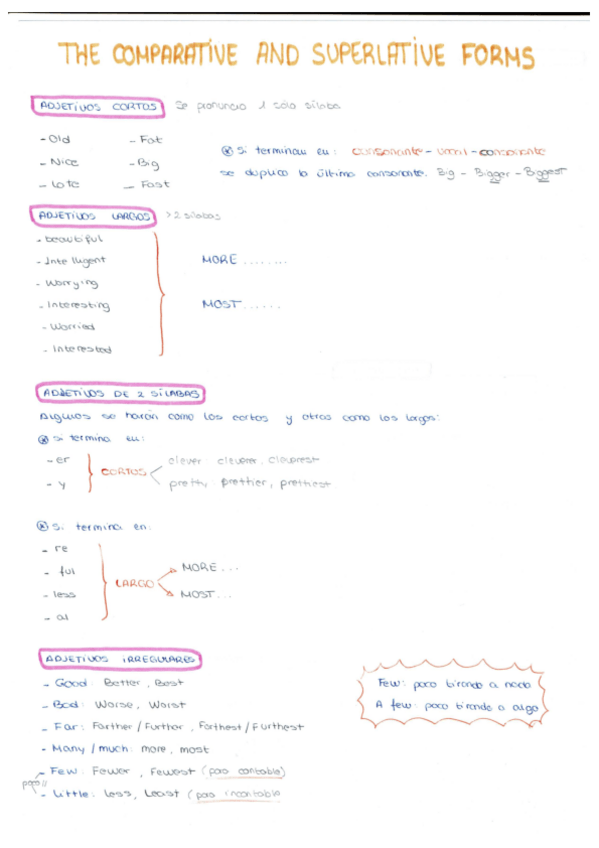 THE COMPARATIVE AND SUPERLATIVE FORMS
ADJETIVOS CORTOS Se pronuncia 1 sólo sílaba
- Old - Fat
- Nice - Big
- Late - Fast
* Si terminan en: consonante - vocal - consonante
se duplica la última consonante. Big - Bigger - Biggest
ADJETIVOS LARGOS > 2 sílabas
- beautiful
- Intelligent
- Worrying
- Interesting
- Worried
- Interested
MORE ........
MOST ......
ADJETIVOS DE 2 SÍLABAS
Algunos se harán como los cortos y otros como los largos:
* Si termina en:
- er
- y
CORTOS
clever: cleverer, cleverest
pretty: prettier, prettiest
* Si termina en:
- re
- ful
- less
- al
LARGO
MORE ...
MOST ...
ADJETIVOS IRREGULARES
- Good: Better, Best
- Bad: Worse, Worst
- Far: Farther / Further, Farthest / Furthest
- Many / much: more, most
- Few: Fewer, Fewest (para contable)
- Little: Less, Least (para incontable
Few: poco tirando a nada
A few: poco tirando a algo